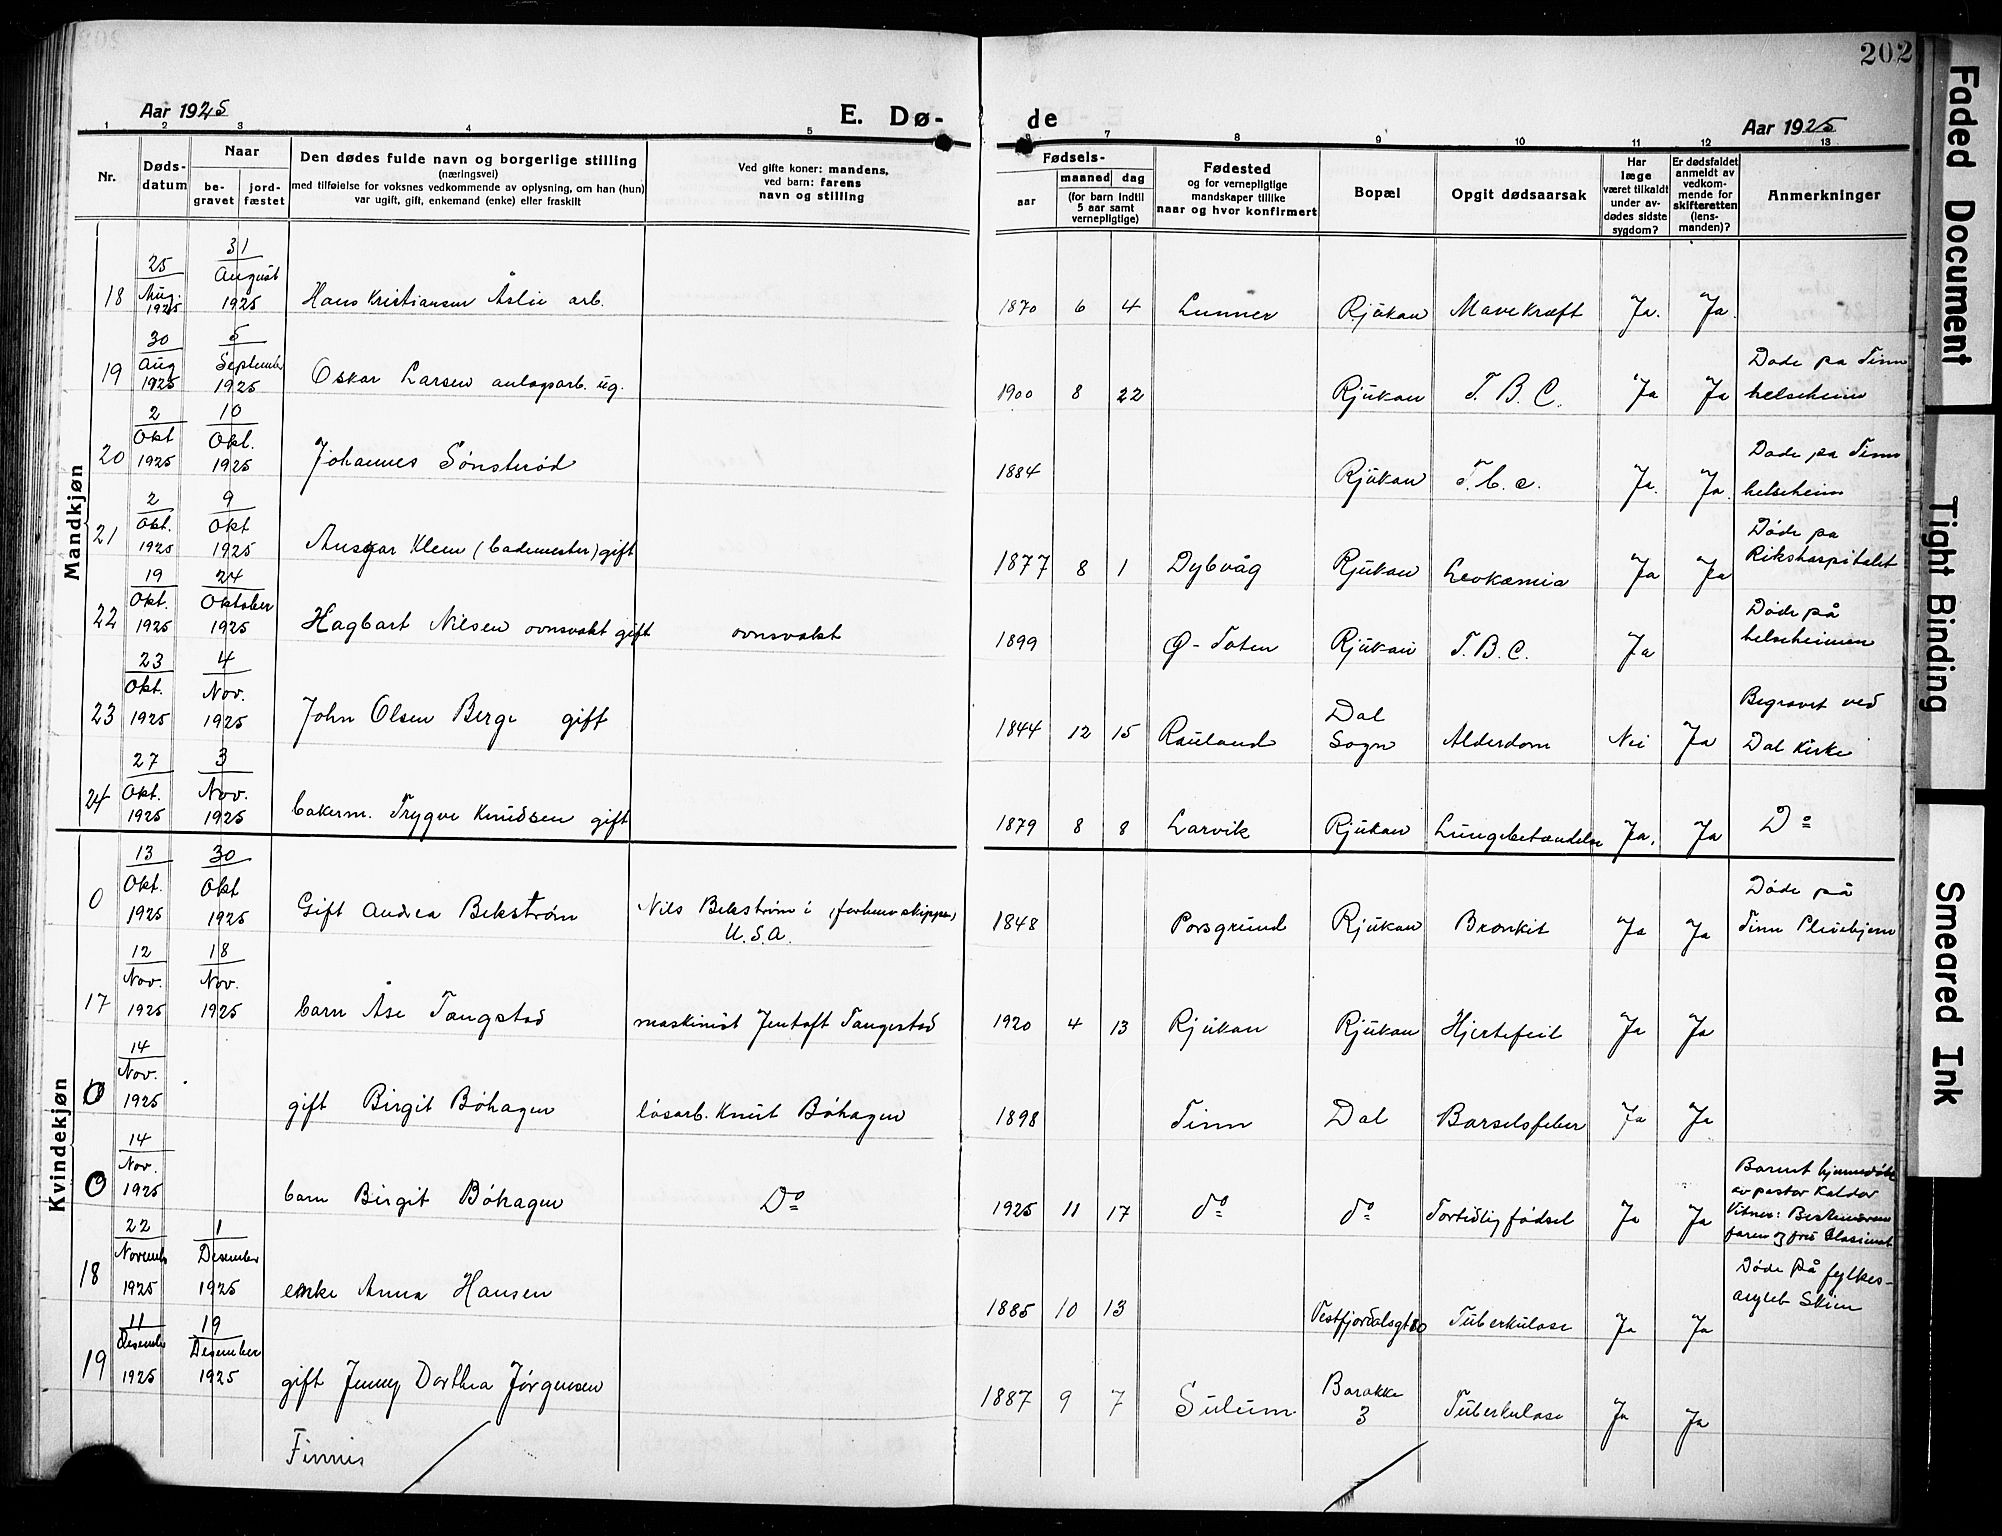 202
Aar 1925
E. Dø-
de
Aar 1925
1 2 3 4 5 6 7 8 9 10 11 12 13
Nr.
Døds-
datum
Naar
be-
gravet
jord-
fæstet
Den dødes fulde navn og borgerlige stilling
(næringsvei)
med tilføielse for voksnes vedkommende av oplysning, om han (hun)
var ugift, gift, enkemand (enke) eller fraskilt
Ved gifte koner: mandens,
ved barn: farens
navn og stilling
Fødsels-
aar
maaned dag
(for barn indtil
5 aar samt
vernepligtige)
Fødested
og for vernepligtige
mandskaper tillike
naar og hvor konfirmert
Bopæl
Opgit dødsaarsak
Har
læge
været tilkaldt
under av-
dødes sidste
sygdom?
Er dødsfaldet
anmeldt av
vedkom-
mende for
skifteretten
(lens-
manden)?
Anmerkninger
Mandkjøn
18 25 Aug. 1925 31 August 1925 Hans Kristiansen Åslie arb. 1870 6 4 Lunner Rjukan Mavekræft Ja. Ja.
19 30 Aug 1925 5 September 1925 Oskar Larsen anlagsarb. ug. 1900 8 22 Rjukan T. B. C. Ja Ja Døde pa Tinn
helseheim
20 2 Okt 1925 10 Okt. 1925 Johannes Sønsterød 1884 Rjukan T. b. c. Ja. Ja. Døde pa Tinn
helseheim
21 2 Okt. 1925 9 Okt 1925 Ansgar Klem (bademester) gift 1877 8 1 Dybvåg Rjukan Levkæmia Ja Ja Døde pa
Rikshospitalet
22 19 Okt. 1925 24 Oktober 1925 Hagbart Nilsen ovnsvakt gift ovnsvakt 1899 Ø-Toten Rjukan T. B. C. Ja Døde på
helseheimen
23 23 Okt. 1925 4 Nov. 1925 John Olsen Berge gift 1844 12 15 Rauland Dal
Sogn Alderdom Nei Ja Begravet ved
Dal Kirke
24 27 Okt. 1925 3 Nov. 1925 bakerm. Trygve Knudsen gift 1879 8 8 Larvik Rjukan Lungebetændelse Ja. Ja Do
Kvindekjøn
0 13 Okt. 1925 30 Okt 1925 Gift Andrea Bekstrøm Nils Bekstrøm i (forhenv. skipper)
U.S.A. 1848 Porsgrund Rjukan Bronkit Ja Ja Døde på
Tinn Pleiehjem
17 12 Nov. 1925 18 Nov. 1925 barn Åse Tangstad maskinist Jentoft Tangestad 1920 4 13 Rjukan Rjukan Hjertefeil Ja Ja
0 14 Nov. 1925 gift Birgit Bøhagen løsarb. Knut Bøhagen 1898 Tinn Dal Barselsfeber Ja Ja
0 14 Nov. 1925 barn Birgit Bøhagen Do 1925 11 17 do do Fortidlig fødsel Ja Ja Barnet hjemmedøbt
av pastor Kaldor
Vitner:
faren og frk
18 22 November 1925 1 Desember 1925 enke Anna Hansen 1885 10 13 Vestfjordalsgt 80 Tuberkulose Ja Ja Døde på fylkes-
Skien
19 11 Desember 1925 19 Desember 1925 gift Jenny Dorthea Jørgensen 1887 9 7 Sulum Barakke
3 Tuberkulose Ja Ja
Finnis
Faded Document
Tight Binding
Smeared Ink